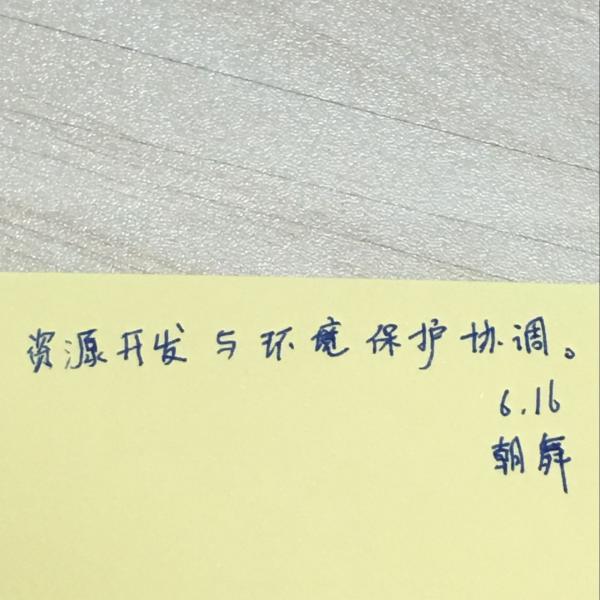 资源开发与环境保护协调。
6.16
朝舞